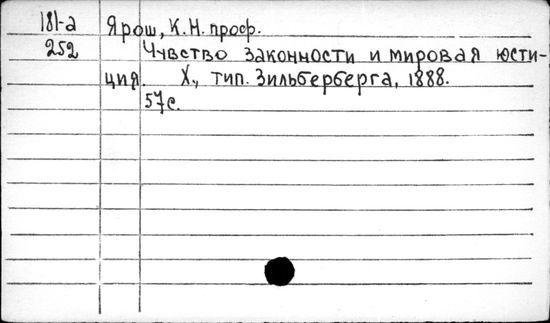 181-а Ярош, К.Н. проф.
252 Чувство законности и мировая юсти-
ция. Х., тип. Зильберберга, 1888.
57с.